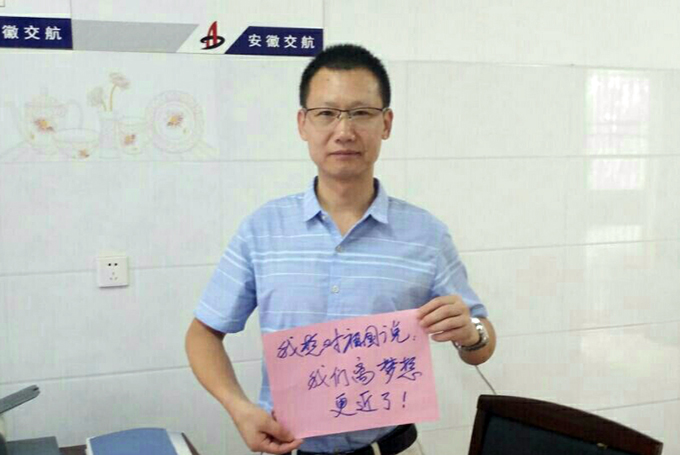 徽交航
安徽交航
我想对祖国说：
我们离梦想
更近了！